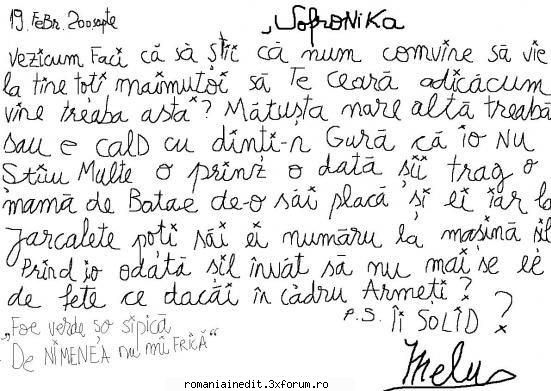 19. FeBr. 200sapte
„SofroNiKa
vezicum Faci că să știi că num comvine să vie
la tine toți maimuțoi să Te ceară adicăcum
vine treaba asta? Mătușta nare altă treabă
sau e calD cu dinți-n Gură că io NU
Stiu Multe o prinz o dată sii trag o
mamă de Batae de-o săi placă și ei iar la
Jarcalete poti săi ei număru la mașină sil
Prind io odată sil învăt să nu mai se ee
de fete ce dacăi în cadru Armeți?
P.S. Îi SOLID?
„Foe verde so sipică
De NIMENEA nu mi FRICĂ“
Melu
romaniainedit.3xforum.ro